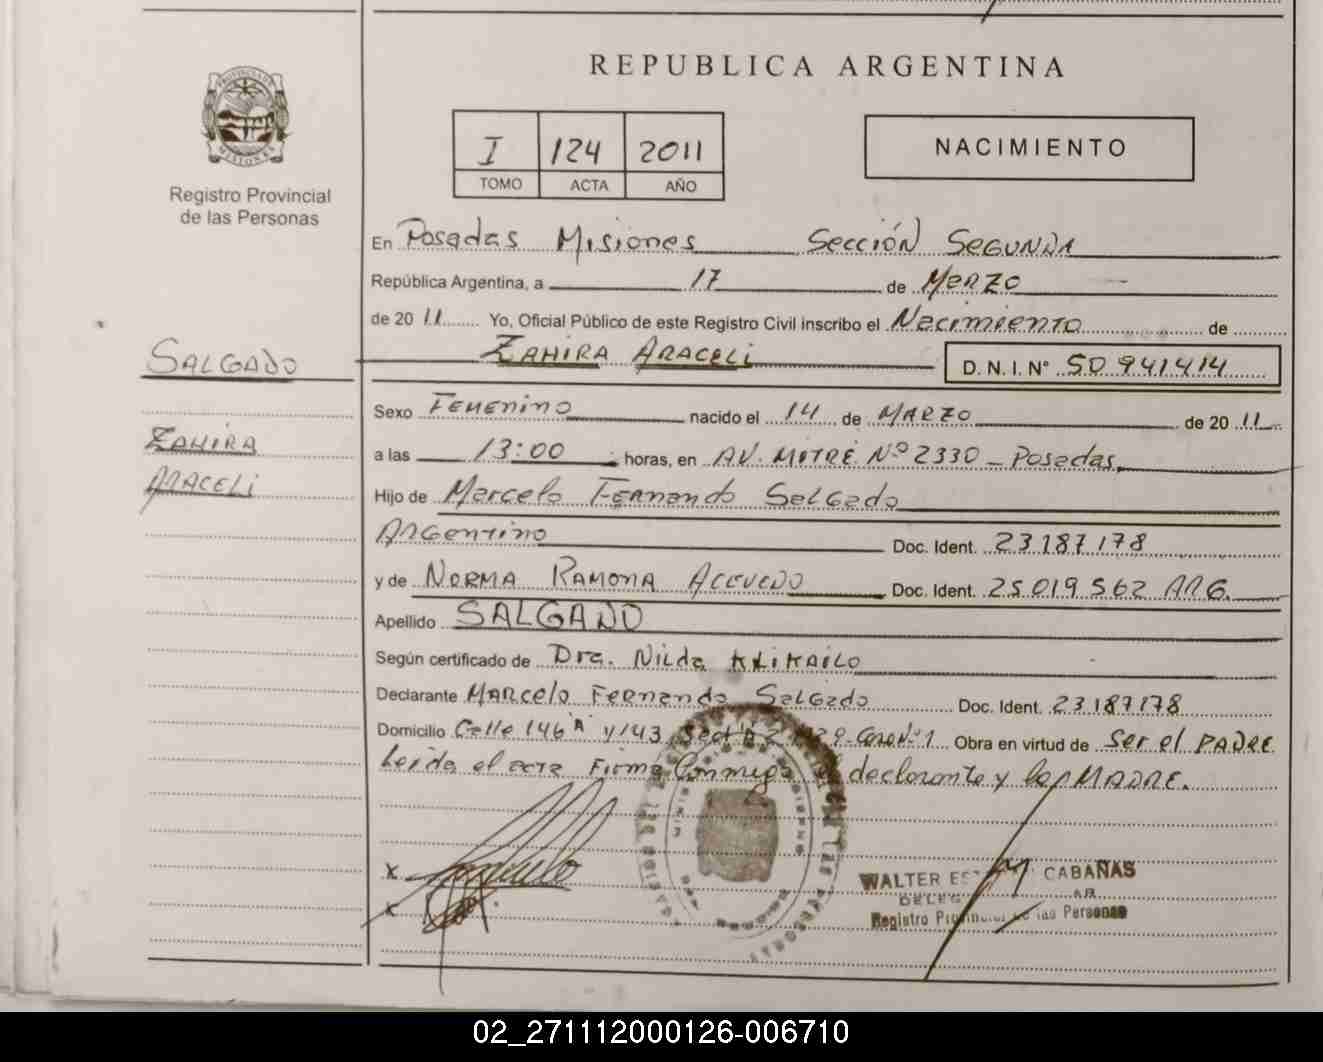 REPUBLICA ARGENTINA
PROVINCIA DE
MISIONES
Registro Provincial
de las Personas
I 124 2011
TOMO ACTA AÑO
NACIMIENTO
En Posadas Misiones Sección Segunda
República Argentina, a 17 de Marzo
de 2011 Yo, Oficial Público de este Registro Civil inscribo el Nacimiento de
ZAHIRA ARACELI D. N. I. Nº 50 941414
SALGADO
ZAHIRA
ARACELI
Sexo Femenino nacido el 14 de MARZO de 2011
a las 13:00 horas, en AV. MITRE Nº 2330 - Posadas
Hijo de Marcelo Fernando Salgado
Argentino Doc. Ident. 23187178
y de NORMA RAMONA ACEVEDO Doc. Ident. 25019562 ARG.
Apellido SALGADO
Según certificado de Dra. Nilda
Declarante Marcelo Fernando Salgado Doc. Ident. 23187178
Domicilio Calle 146 "A" y 143 Casa Nº 1 Obra en virtud de Ser el PADRE
Leida el acta Firma Conmigo el declarante y la MADRE.
X
X
WALTER CABAÑAS
Registro Provincial de las Personas
02_271112000126-006710